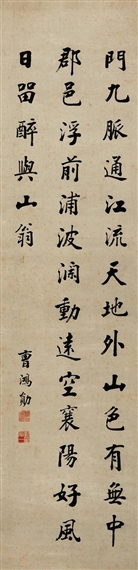 門九脈通江流天地外山色有無中
郡邑浮前浦波澜動遠空襄陽好風
日留醉與山翁
曹鴻勛